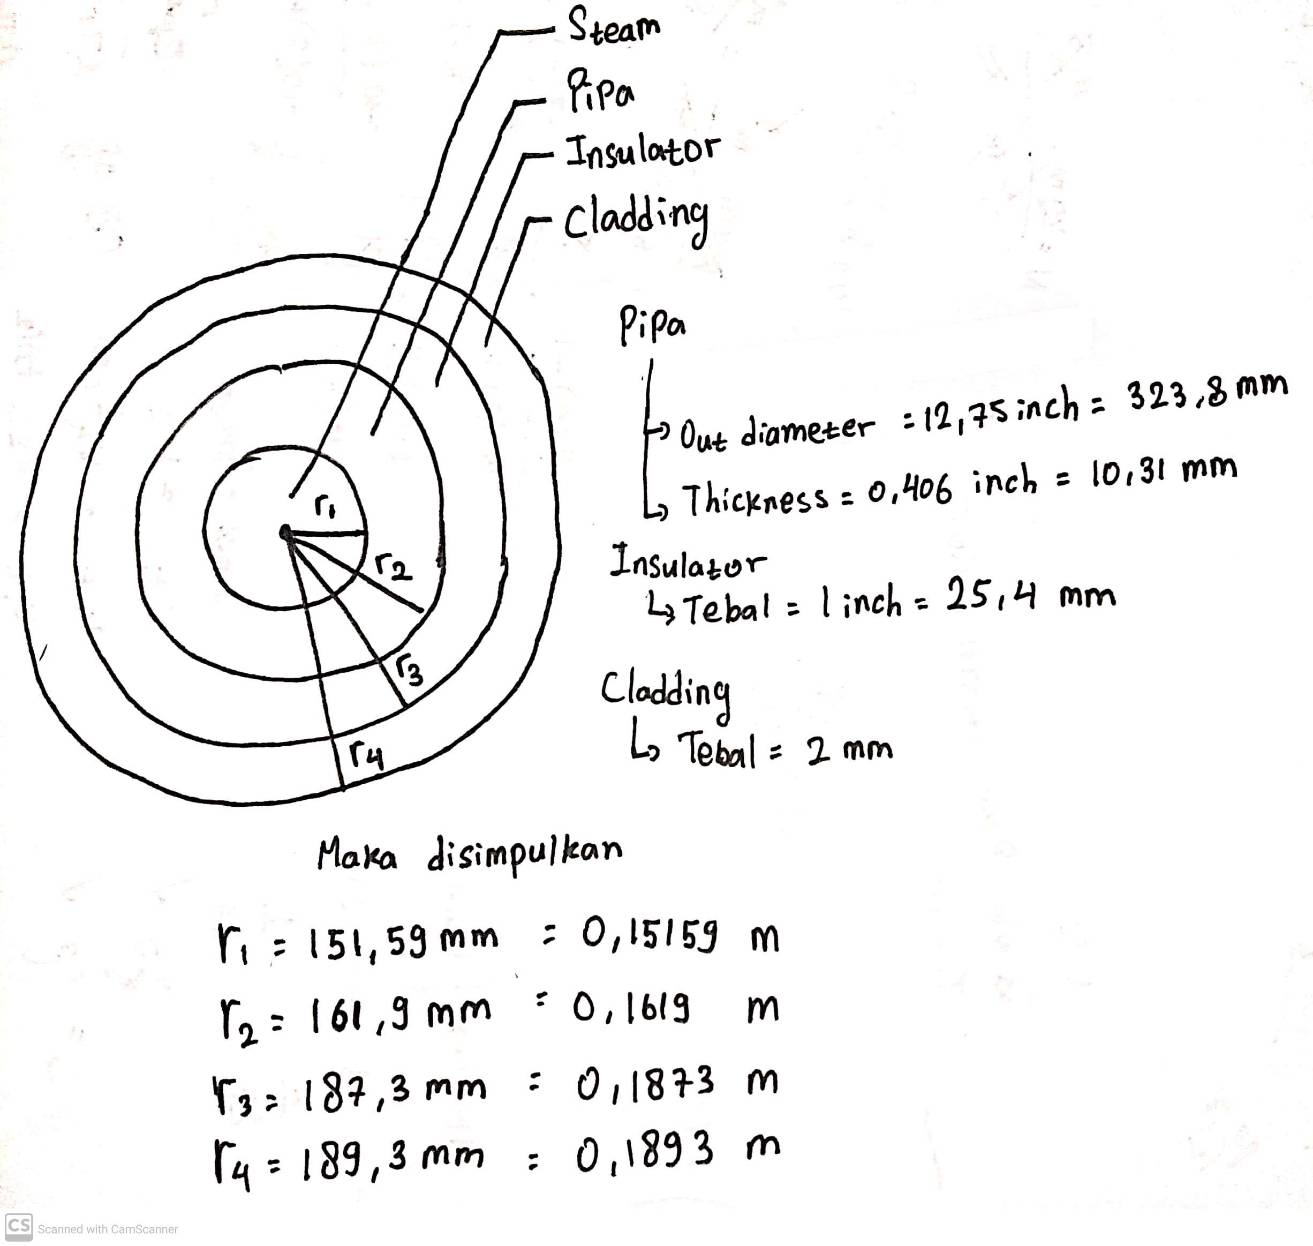 Steam
Pipa
Insulator
Cladding
r1
r2
r3
r4
Pipa
Out diameter = 12,75 inch = 323,8 mm
Thickness = 0,406 inch = 10,31 mm
Insulator
Tebal = 1 inch = 25,4 mm
Cladding
Tebal = 2 mm
Maka disimpulkan
r1 = 151,59 mm = 0,15159 m
r2 = 161,9 mm = 0,1619 m
r3 = 187,3 mm = 0,1873 m
r4 = 189,3 mm = 0,1893 m
CS Scanned with CamScanner